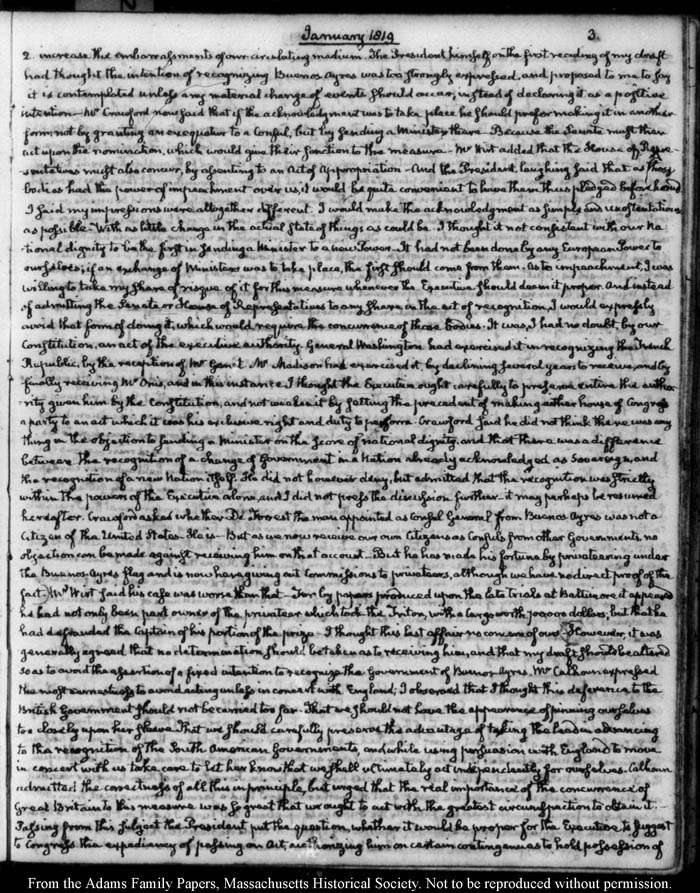 January 1819 3.
2. increase the embarrassments of our circulating medium. The President himself on the first reading of my draft
had thought the intention of recognizing Buenos Ayres was too strongly expressed, and proposed to me to say
it is contemplated unless any material change of events should occur, instead of declaring it as a positive
intention — Mr Crawford now said that if the acknowledgment was to take place he should prefer making it in another
form; not by granting an exequatur to a Consul, but by sending a Minister there. Because the Senate must then
act upon the nomination, which would give their sanction to the measure — Mr Wirt added that the House of Repre-
sentatives must also concur, by assenting to an Act of Appropriation — And the President, laughing said that as those
bodies had the power of impeachment over us, it would be quite convenient to have them thus pledged beforehand.
I said my impressions were altogether different. I would make the acknowledgment as simple and unostentatious
as possible. With as little change in the actual state of things as could be. I thought it not consistent with our Na-
tional dignity to be the first in sending a Minister to a new Power. It had not been done by any European Power to
ourselves; if an exchange of Ministers was to take place, the first should come from them. As to impeachment, I was
willing to take my share of risque of it for this measure whenever the Executive should deem it proper. And instead
of admitting the Senate or House of Representatives to any share in the act of recognition, I would expressly
avoid that form of doing it, which would require the concurrence of those bodies. It was, I had no doubt, by our
Constitution, an act of the executive authority. General Washington had exercised it in recognizing the French
Republic, by the reception of Mr Genet. Mr Madison had exercised it, by declining several years to receive, and by
finally receiving Mr Onis, and in this instance, I thought the Executive ought carefully to preserve entire the autho-
rity given him by the Constitution, and not weaken it by setting the precedent of making either house of Congress
a party to an act which it was his exclusive right and duty to perform. Crawford said he did not think there was any
thing in the objection to sending a Minister on the score of national dignity, and that there was a difference
between the recognition of a change of Government in a Nation already acknowledged as Sovereign, and
the recognition of a new Nation itself. He did not however deny, but admitted that the recognition was strictly
within the powers of the Executive alone, and I did not press the discussion further. it may perhaps be resumed
hereafter. Crawford asked whether De Forrest the man appointed as Consul General from Buenos Ayres was not a
Citizen of the United States. He is — But as we now receive our own Citizens as Consuls from other Governments, no
objection can be made against receiving him on that account. But he has made his fortune by privateering under
the Buenos-Ayres flag and is now here giving out Commissions to privateers, although we have no direct proof of the
fact. Mr Wirt said his case was worse than that — For by papers produced upon the late trials at Baltimore it appeared
he had not only been part owner of the privateer which took the Triton, with a cargo worth dollars, but that he
had defrauded the Captain of his portion of the prize. I thought this last affair no concern of ours. However, it was
generally agreed that no determination should be taken as to receiving him, and that my draft should be altered
so as to avoid the assertion of a fixed intention to recognize the Government of Buenos Ayres. Mr Calhoun expressed
the most earnestness to avoid acting unless in concert with England; I observed that I thought this deference to the
British Government should not be carried too far. That we should not have the appearance of pinning ourselves
too closely upon her sleeve. That we should carefully preserve the advantage of taking the lead in advancing
to the recognition of the South American Governments, and while using persuasion with England to move
in concert with us take care to let her know that we shall ultimately act independently for ourselves. Calhoun
admitted the correctness of all this in principle, but urged that the real importance of the concurrence of
Great Britain to this measure was so great that we ought to act with the greatest circumspection to obtain it.
Passing from this subject the President put the question, whether it would be proper for the Executive to suggest
to Congress the expediency of passing an Act, authorizing him on certain contingencies to hold possession of
From the Adams Family Papers, Massachusetts Historical Society. Not to be reproduced without permission.